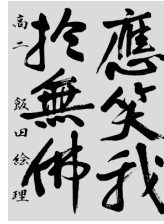 應笑我
拎無佛
高二 飯田絵理